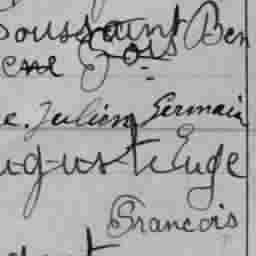 oussaint Ben
ene Fois
e. Julien Germain
ugustEuge
Francois